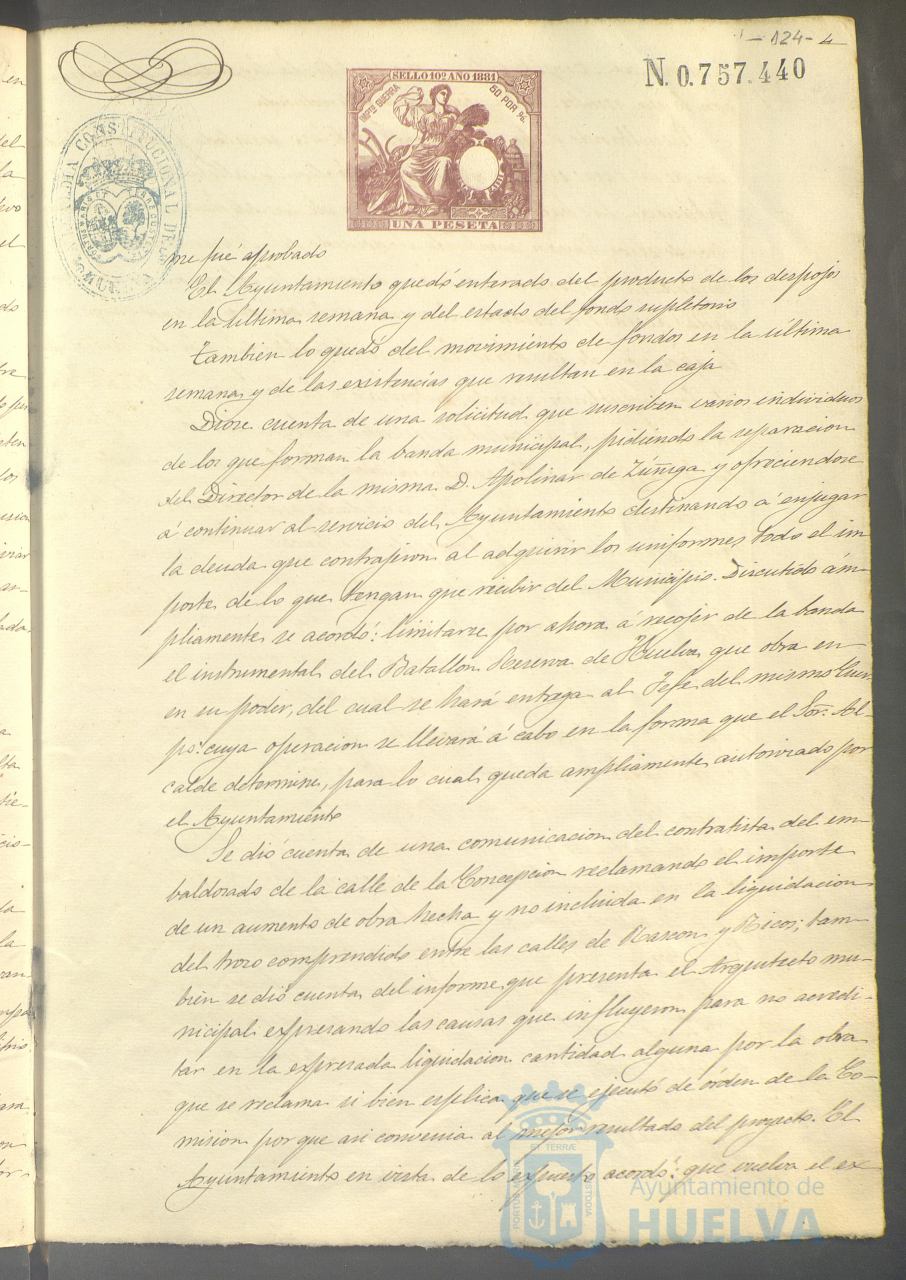 - 124 - 4
N. 0.757.440
SELLO 10º AÑO 1881
IMPTO GUERRA
50 POR %
UNA PESETA
ALCALDIA CONSTITUCIONAL DE HUELVA
me fué aprobado
El Ayuntamiento quedó enterado del producto de los despojos
en la última semana y del estado del fondo supletorio
Tambien lo quedó del movimiento de fondos en la última
semana y de las existencias que resultan en la caja
Diose cuenta de una solicitud que suscriben varios individuos
de los que forman la banda municipal, pidiendo la separacion
del Director de la misma D. Apolinar de Zúñiga y ofreciendose
á continuar al servicio del Ayuntamiento destinando á enjugar
la deuda que contrajeron al adquirir los uniformes todo el im
porte de lo que tengan que recibir del Municipio. Discutido ám-
pliamente se acordó: limitarse por ahora á recojer de la banda
el instrumental del Batallon Reserva de Huelva que obra en
en su poder, del cual se hará entrega al Jefe del mismo Cuer
po: cuya operacion se llevará á cabo en la forma que el Sor. Al-
calde determine, para lo cual queda ampliamente autorizado por
el Ayuntamiento
Se dió cuenta de una comunicacion del contratista del em-
baldosado de la calle de la Concepcion reclamando el importe
de un aumento de obra hecha y no incluida en la liquidacion
del trozo comprendido entre las calles de Rascon y Ricos; tam-
bien se dió cuenta del informe que presenta el Arquitecto mu-
nicipal expresando las causas que influyeron para no acredi-
tar en la expresada liquidacion cantidad alguna por la obra
que se reclama si bien esplica que se ejecutó de órden de la Co-
mision por que asi convenia al mejor resultado del proyecto. El
Ayuntamiento en vista de lo expuesto acordó: que vuelva el ex
PORTUS MARIS ET TERRÆ CUSTODIA
Ayuntamiento de
HUELVA